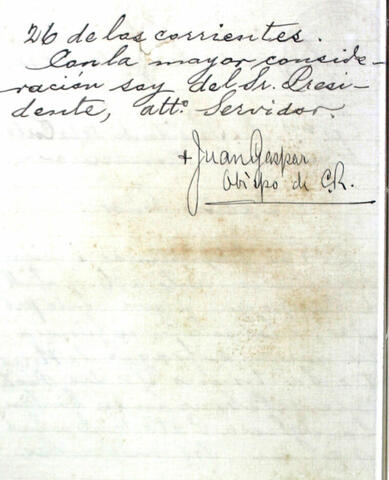 26 de los corrientes.
Con la mayor conside-
ración soy del Sr. Presi-
dente, atto. Servidor.
+ Juan Gaspar
Obispo de C.R.